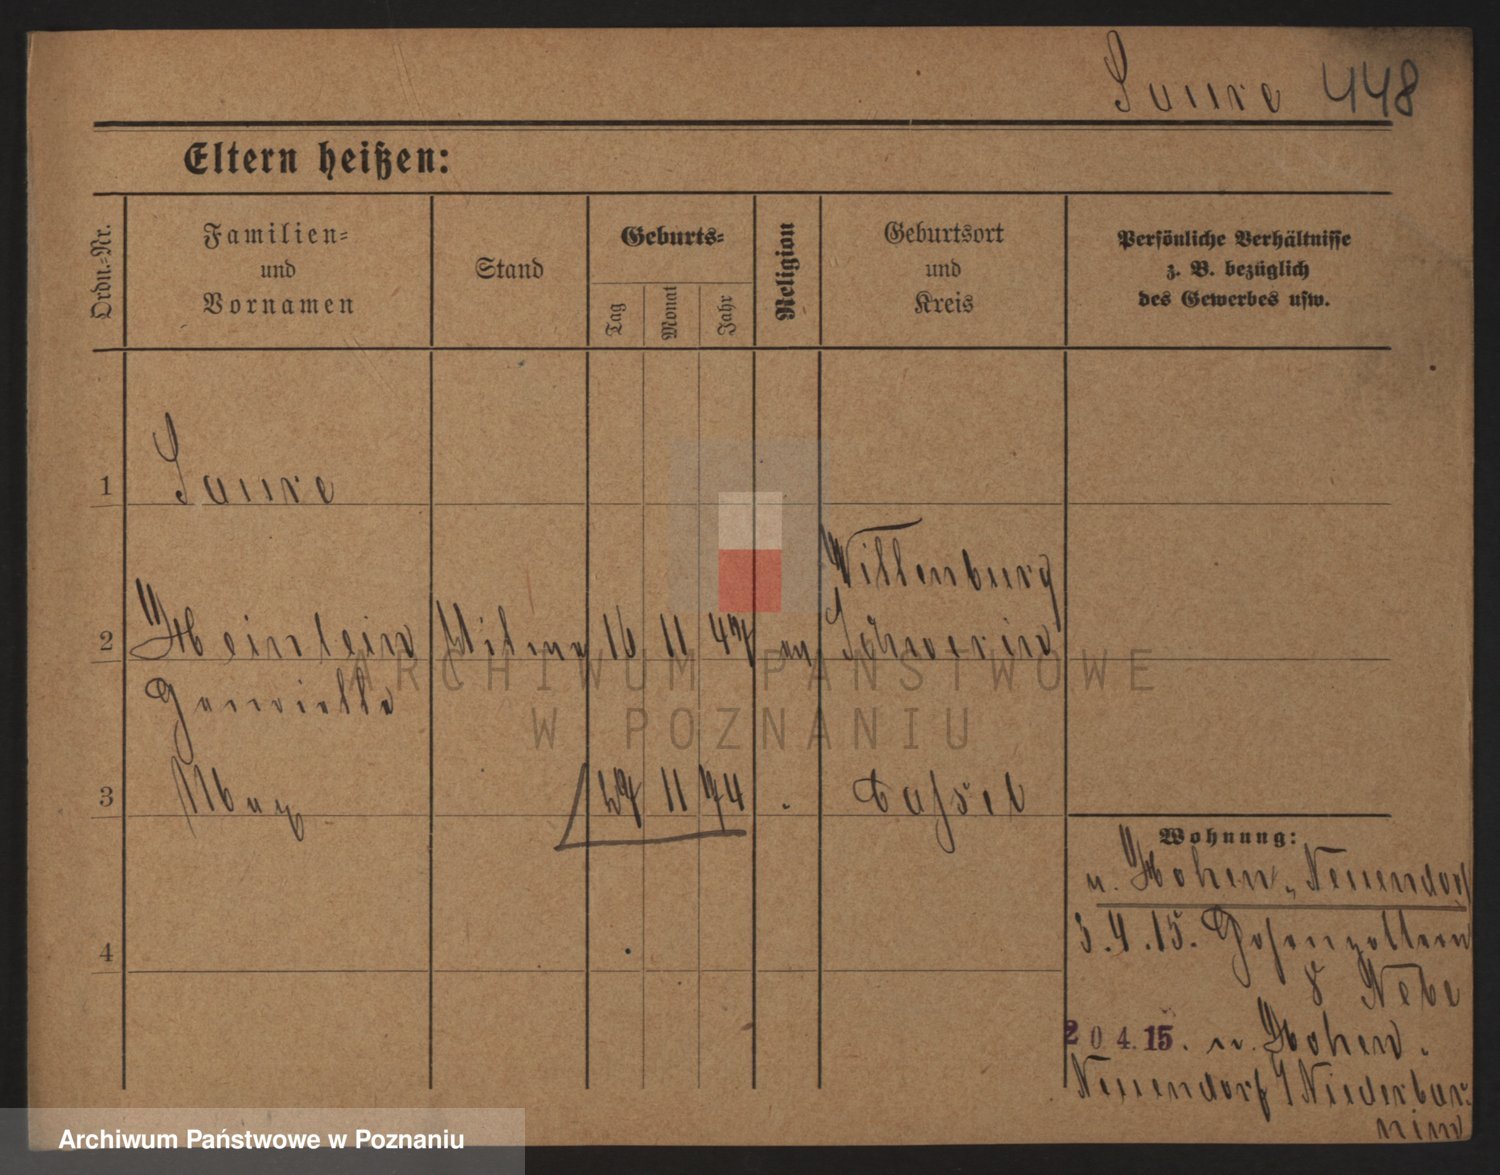 Saure 448
Eltern heißen:
Ordn.-Nr.
Familien-
und
Vornamen
Stand
Geburts-
Tag
Monat
Jahr
Religion
Geburtsort
und
Kreis
Persönliche Verhältnisse
z. B. bezüglich
des Gewerbes usw.
1 Saure
Wittenburg
2 Heinlein Witwe 16 11 47 ev Schwerin
Henriette
3 Max 27 11 74 Cassel
4
Wohnung:
n. Hohen-Neuendorf
3.4.15. Hohenzollern
8 Nebe
20 4.15. n. Hohen
Neuendorf / Niederbar-
nim
ARCHIWUM PAŃSTWOWE
W POZNANIU
Archiwum Państwowe w Poznaniu